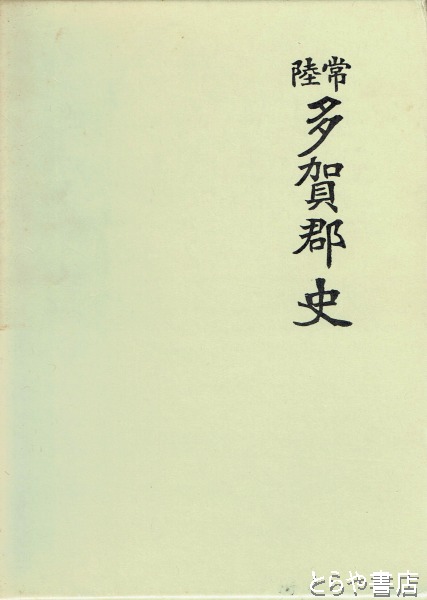 常陸
多賀郡史
とらや書店